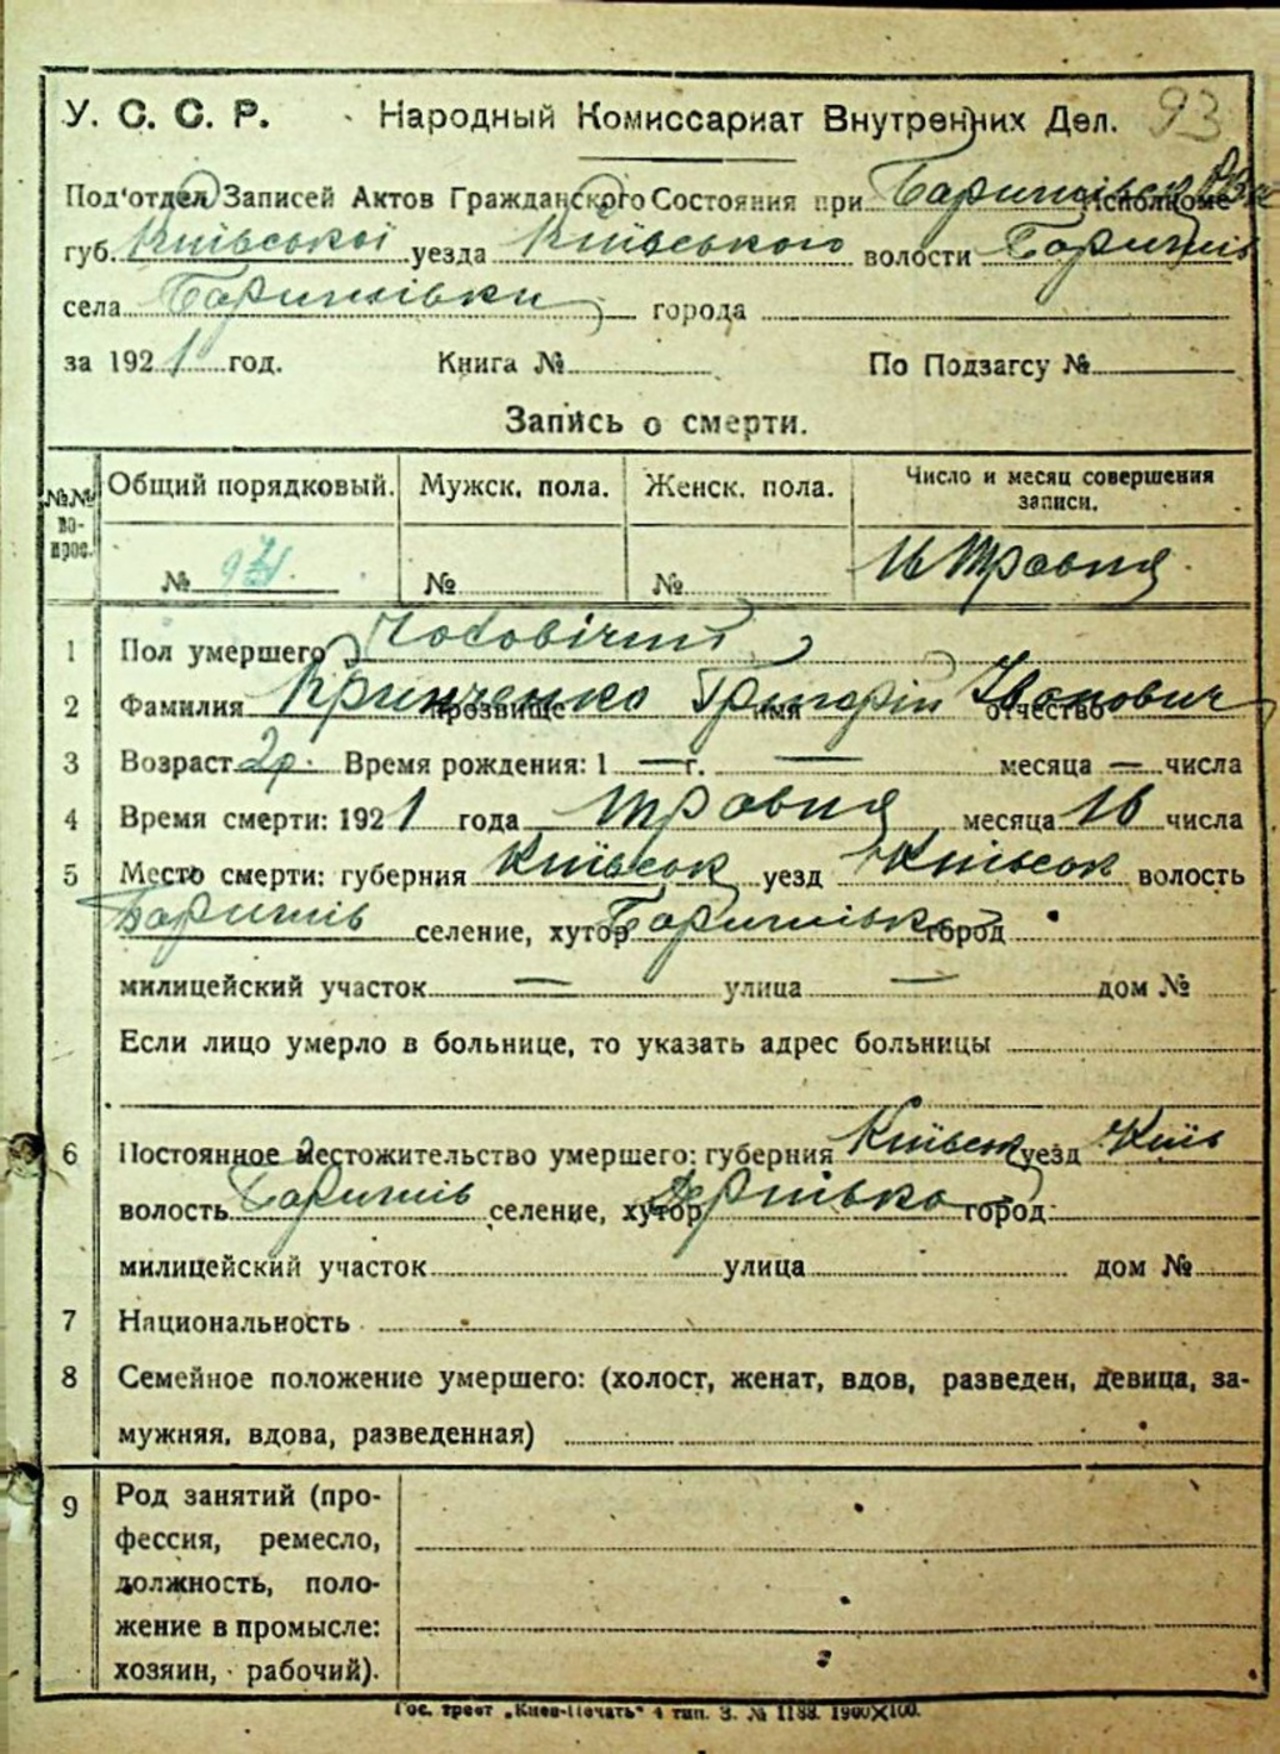 У. С. С. Р. Народный Комиссариат Внутренних Дел. 93
Под'отдел Записей Актов Гражданского Состояния при Исполкоме
губ. Київської уезда Київського волости Баришів
села Баришівки города
за 1921 год. Книга № По Подзагсу №
Запись о смерти.
№№ во-прос. Общий порядковый. Мужск. пола. Женск. пола. Число и месяц совершения записи.
№ № № 16 Травня
1 Пол умершего Чоловічий
2 Фамилия Кринченко Григорій Іванович
прозвище имя отчество
3 Возраст 2р. Время рождения: 1 — г. — месяца — числа
4 Время смерти: 1921 года травня месяца 16 числа
5 Место смерти: губерния Київськ уезд Київськ волость
Баришів селение, хутор Баришівка город
милицейский участок — улица — дом №
Если лицо умерло в больнице, то указать адрес больницы
6 Постоянное местожительство умершего: губерния Київськ уезд Київ
волость Баришів селение, хутор город
милицейский участок улица дом №
7 Национальность
8 Семейное положение умершего: (холост, женат, вдов, разведен, девица, за-
мужняя, вдова, разведенная)
9 Род занятий (про-
фессия, ремесло,
должность, поло-
жение в промысле:
хозяин, рабочий).
Гос. трест „Киев-Печать" 4 тип. З. № 1188. 1900X100.